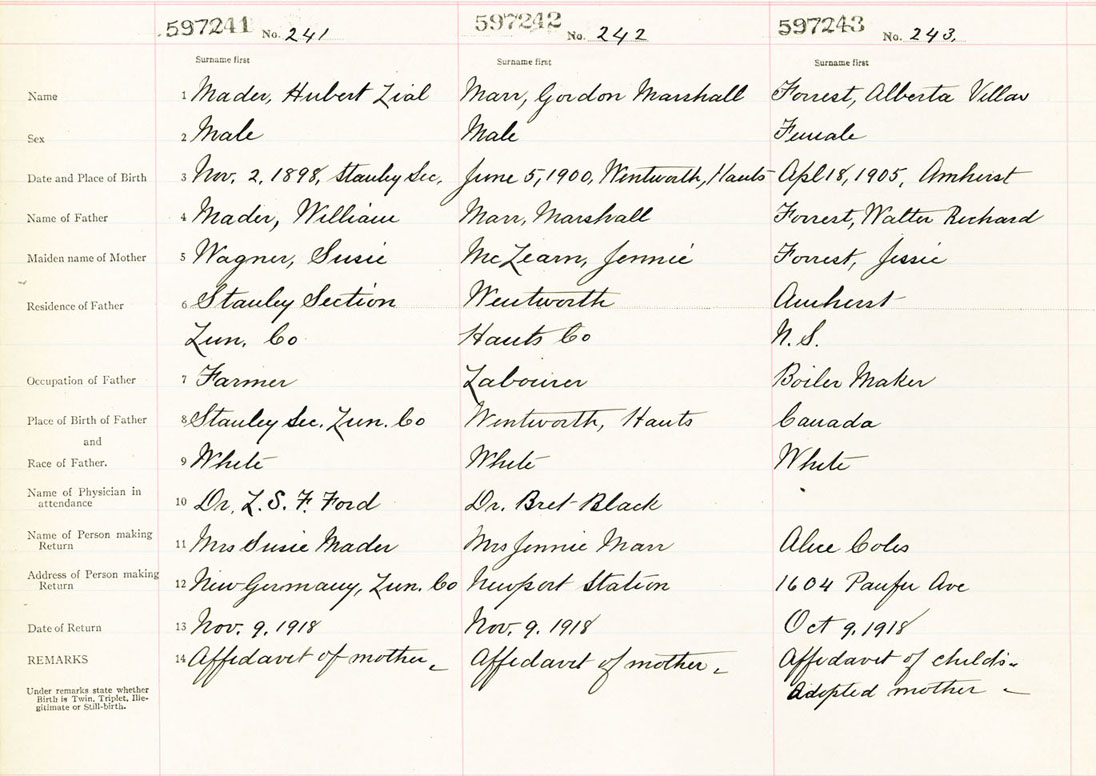 597241 No. 241 597242 No. 242 597243 No. 243.
Surname first Surname first Surname first
Name 1 Mader, Hubert Zial Marr, Gordon Marshall Forrest, Alberta
Sex 2 Male Male Female
Date and Place of Birth 3 Nov. 2, 1898, Stanley Sec. June 5, 1900, Wentworth, Hants Apl 18, 1905, Amherst
Name of Father 4 Mader, William Marr, Marshall Forrest, Walter Richard
Maiden name of Mother 5 Wagner, Susie McLearn, Jennie Forrest, Jessie
Residence of Father 6 Stanley Section Wentworth Amherst
Lun. Co Hants Co N. S.
Occupation of Father 7 Farmer Labourer Boiler Maker
Place of Birth of Father 8 Stanley Sec. Lun. Co Wentworth, Hants Canada
and
Race of Father. 9 White White White
Name of Physician in
attendance 10 Dr. L. S. F. Ford Dr. Bret Black
Name of Person making
Return 11 Mrs Susie Mader Mrs Jennie Marr Alice Coles
Address of Person making
Return 12 New Germany, Lun. Co Newport Station 1604 Ave
Date of Return 13 Nov. 9. 1918 Nov. 9. 1918 Oct 9. 1918
REMARKS 14 Affidavit of mother Affidavit of mother Affidavit of child's
Adopted mother
Under remarks state whether
Birth is Twin, Triplet, Ille-
gitimate or Still-birth.